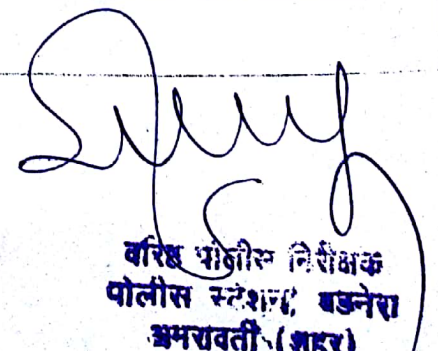 वरिष्ठ पोलीस निरीक्षक
पोलीस स्टेशन, बडनेरा
अमरावती (शहर)